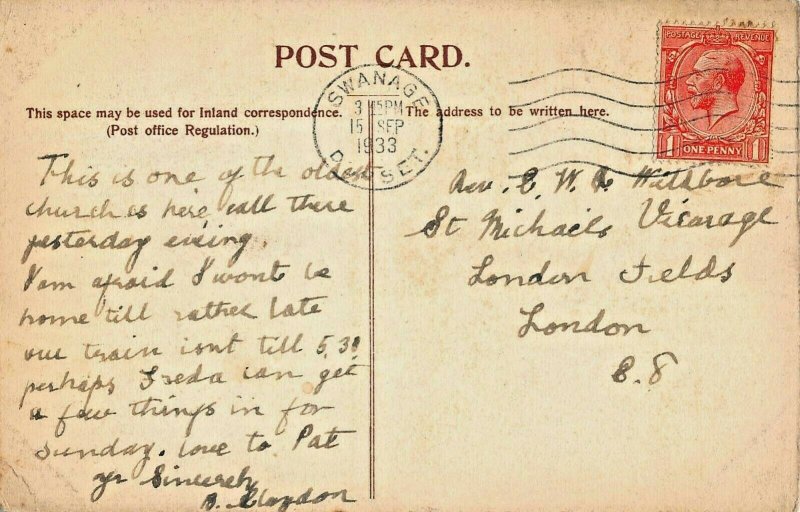 POST CARD.
SWANAGE
3 45PM
15 SEP
1933
DORSET.
POSTAGE REVENUE
1 ONE PENNY 1
This space may be used for Inland correspondence.
(Post office Regulation.)
The address to be written here.
This is one of the oldest
churches here, call there
yesterday
I am afraid I wont be
home till rather late
our train isnt till 5.30
perhaps Freda can get
a few things in for
Sunday. love to Pat
yr Sincerely
Claydon
Rev. E. W.
St Michaels Vicarage
London Fields
London
E. 8